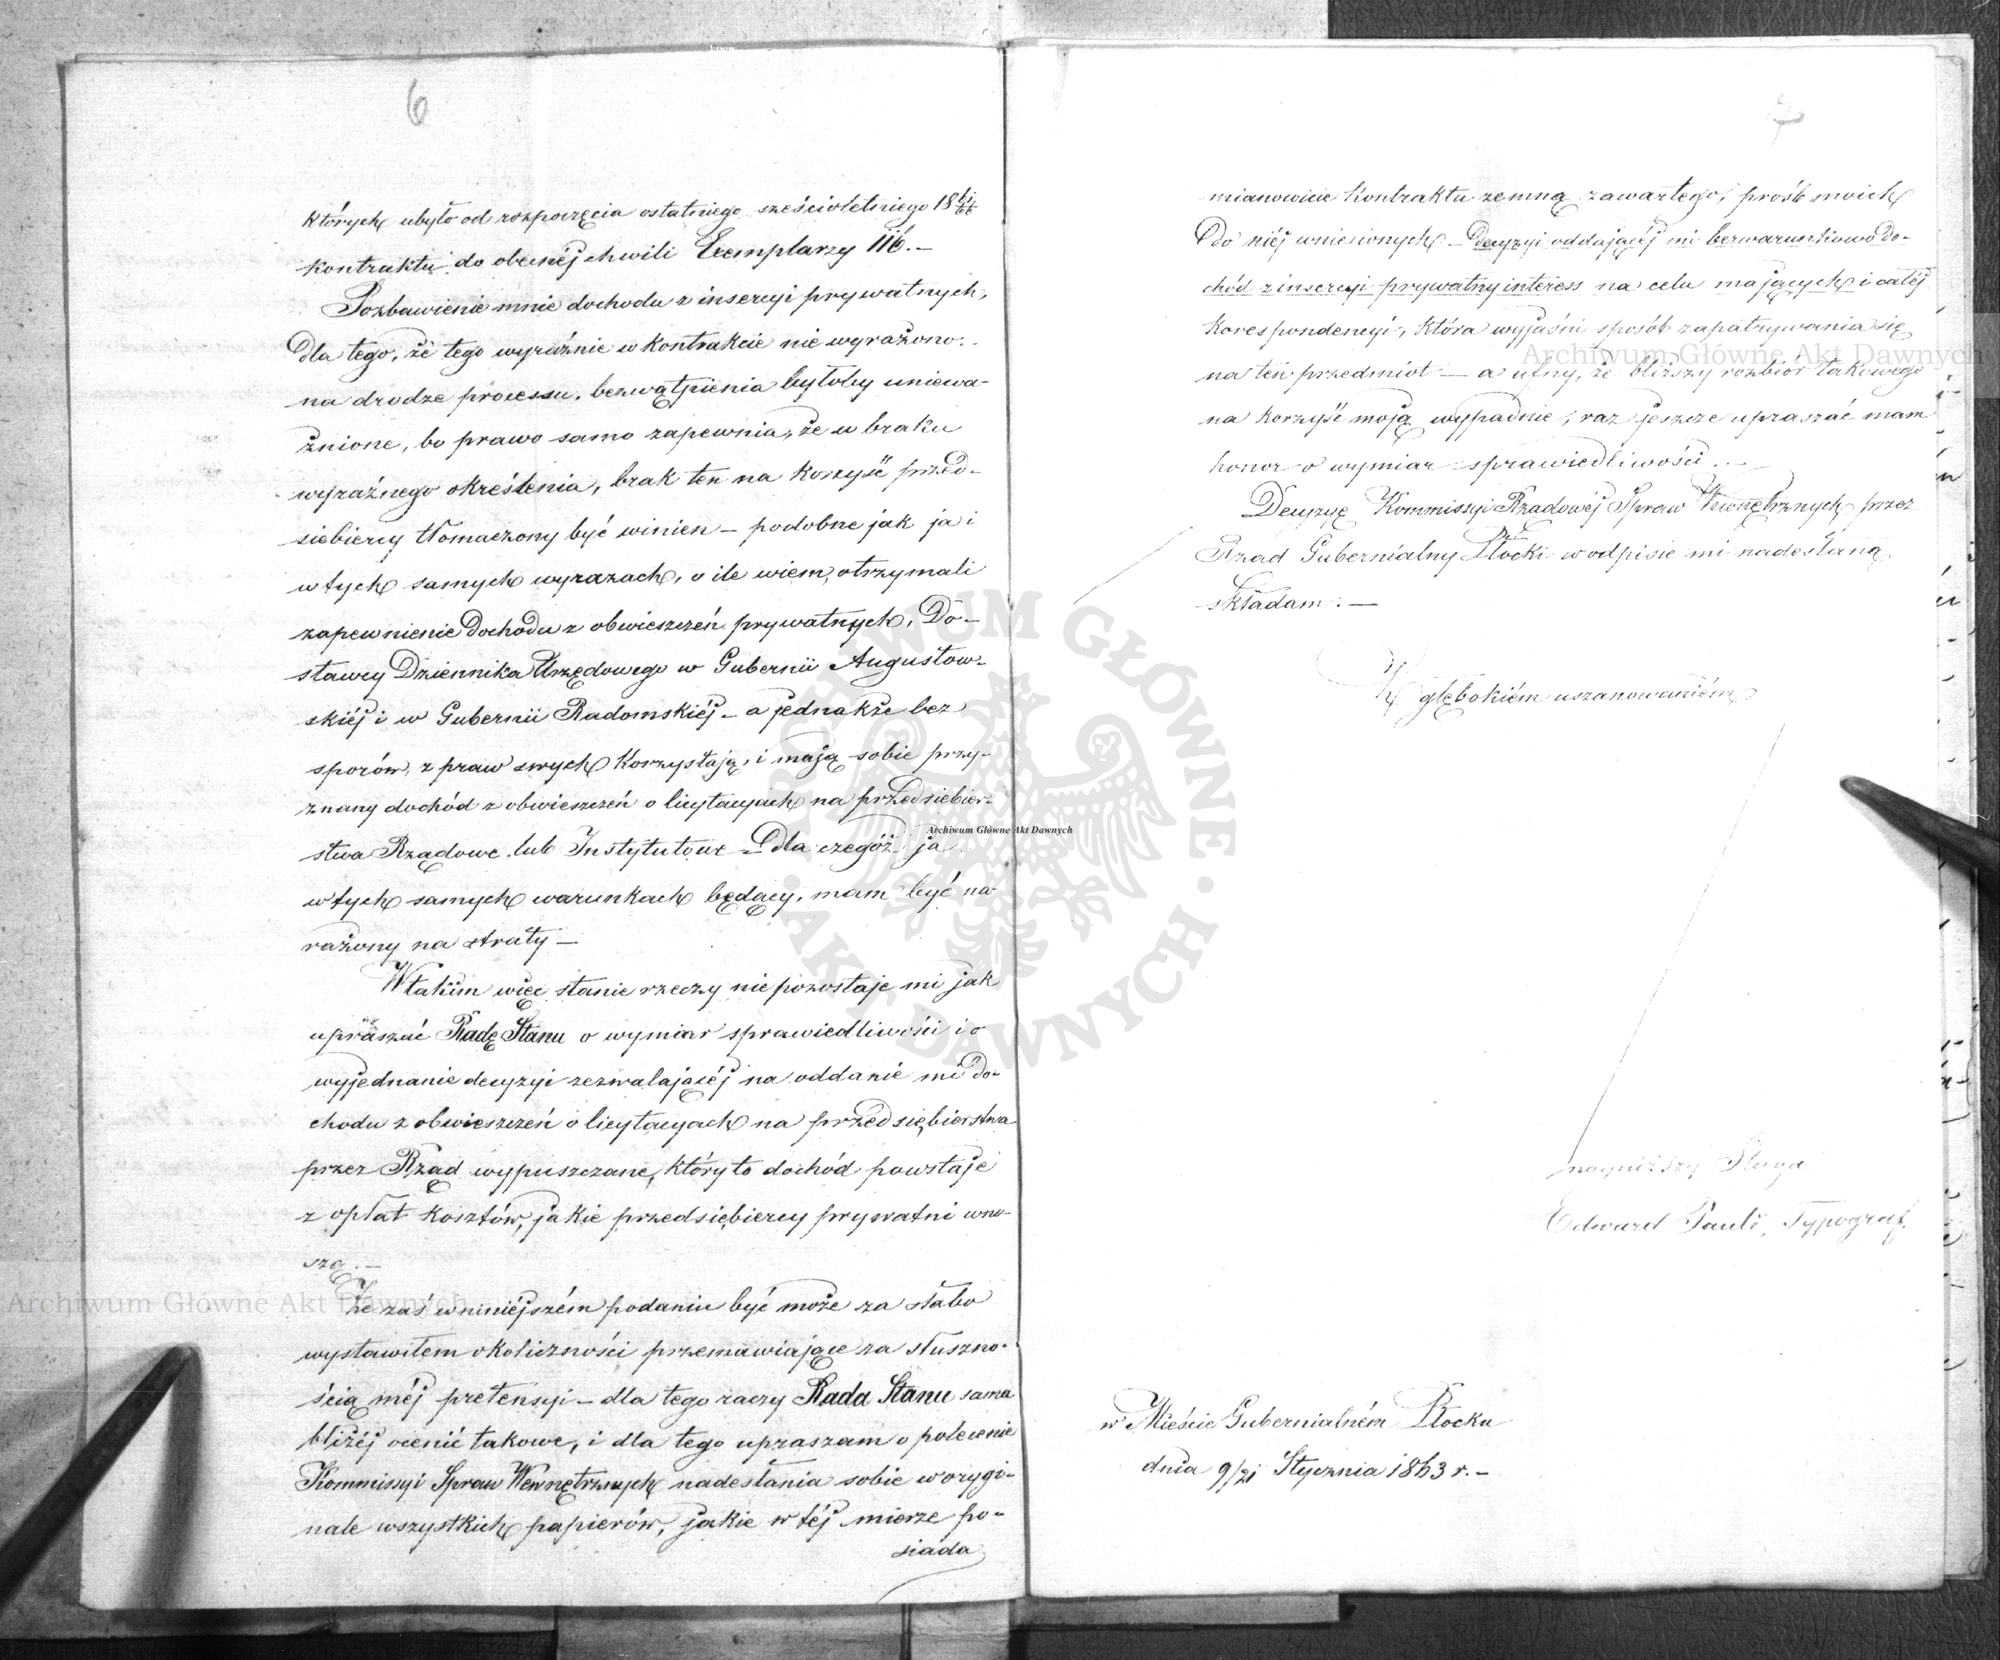 6
których ubyło od rozpoczęcia ostatniego sześcioletniego 18 61/66
kontraktu do obecnéj chwili Exemplarzy 116.—
Pozbawienie mnie dochodu z insercyi prywatnych,
dla tego, że tego wyraźnie w kontrakcie nie wyrażono.
na drodze processu, bezwątpienia byłoby uniewa-
żnione, bo prawo samo zapewnia, że w braku
wyraźnego określenia, brak ten na korzyść przed-
siebiercy tłomaczony być winien — podobne jak ja i
w tych samych wyrazach, o ile wiem, otrzymali
zapewnienie dochodu z obwieszczeń prywatnych, Do-
stawcy Dziennika Urzędowego w Gubernii Augustow-
skiéj i w Gubernii Radomskiéj — a jednakże bez
sporów, z praw swych korzystają, i mają sobie przy-
znany dochód z obwieszczeń o licytacyach na przedsiebier-
stwa Rządowe lub Instytutowe — Dla czegóż ja
w tych samych warunkach będący, mam być na
rażony na straty —
W takim więc stanie rzeczy nie pozostaje mi jak
upraszać Radę Stanu o wymiar sprawiedliwości i o
wyjednanie decyzyi zezwalającéj na oddanie mi do-
chodu z obwieszczeń o licytacyach na przedsiębierstwa
przez Rząd wypuszczane, który to dochód powstaje
z opłat kosztów, jakie przedsiębiercy prywatni wno-
szą.—
Że zaś w niniejszém podaniu być może za słabo
wystawiłem okoliczności przemawiające za słuszno-
ścią méj pretensyi — dla tego raczy Rada Stanu sama
bliżéj ocenić takowe, i dla tego upraszam o polecenie
Kommissyi Spraw Wewnętrznych nadesłania sobie w orygi-
nale wszystkich papierów, jakie w téj mierze po-
siada
7
mianowicie kontraktu zemną zawartego, prośb moich
do niéj wniesionych — decyzyi oddającéj mi bezwarunkowo do-
chód z insercyi prywatny interess na celu mających i całéj
korespondencyi, która wyjaśni sposób zapatrywania się
na ten przedmiot — a ufny, że bliższy rozbiór takowego
na korzyść moją wypadnie, raz jeszcze upraszać mam
honor o wymiar sprawiedliwości.—
Decyzyę Kommissyi Rządowéj Spraw Wewnętrznych przez
Rząd Gubernialny Płocki w odpisie mi nadesłaną
składam.—
Z głębokiém uszanowaniém
najniższy Sługa
Edward Pauli, Typograf.
w Mieście Gubernialném Płocku
dnia 9/21 Stycznia 1863 r.—
Archiwum Główne Akt Dawnych
Archiwum Główne Akt Dawnych
Archiwum Główne Akt Dawnych
ARCHIWUM GŁÓWNE · AKT DAWNYCH ·